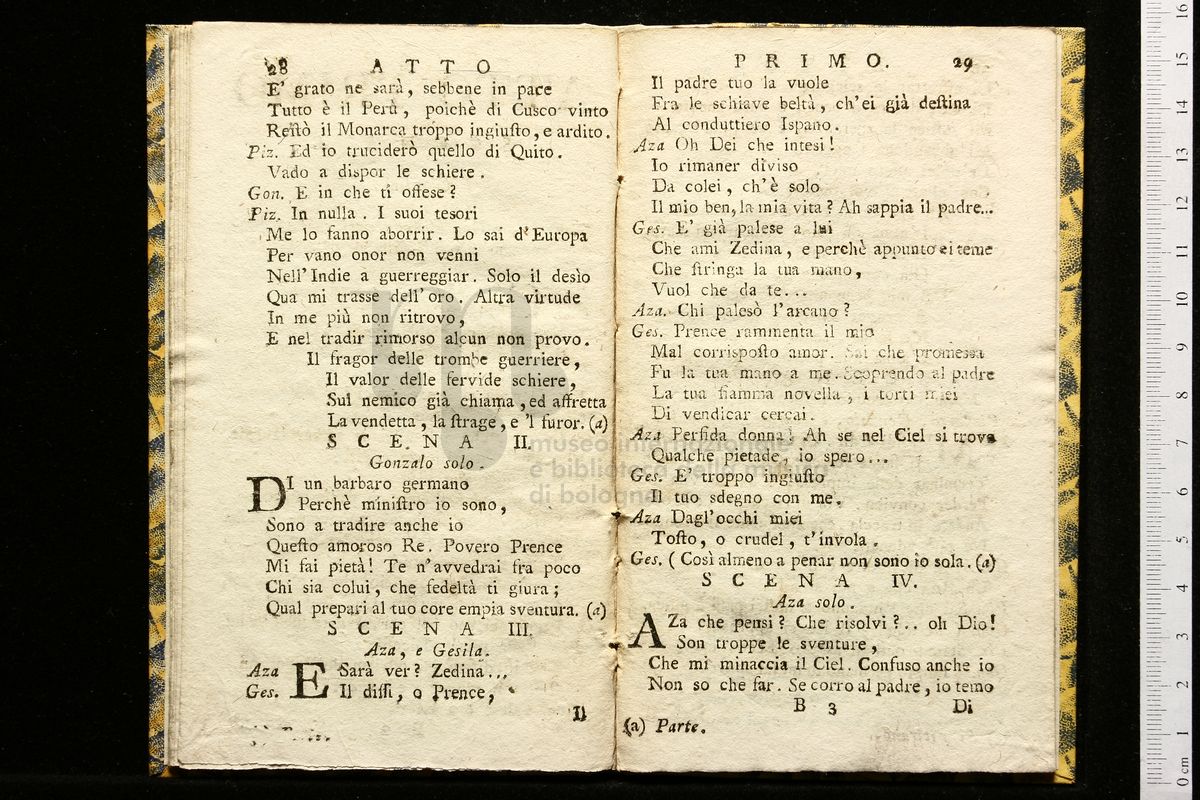 28 ATTO
E' grato ne sarà, sebbene in pace
Tutto è il Perù, poichè di Cusco vinto
Reſtò il Monarca troppo ingiuſto, e ardito.
Piz. Ed io truciderò quello di Quito.
Vado a diſpor le schiere.
Gon. E in che ti offese?
Piz. In nulla. I suoi tesori
Me lo fanno aborrir. Lo sai d'Europa
Per vano onor non venni
Nell'Indie a guerreggiar. Solo il desìo
Qua mi trasse dell'oro. Altra virtude
In me più non ritrovo,
E nel tradir rimorso alcun non provo.
Il fragor delle trombe guerriere,
Il valor delle fervide schiere,
Sul nemico già chiama, ed affretta
La vendetta, la ſtrage, e 'l furor. (a)
SCENA II.
Gonzalo solo.
DI un barbaro germano
Perchè miniſtro io sono,
Sono a tradire anche io
Queſto amoroso Re. Povero Prence
Mi fai pietà! Te n'avvedrai fra poco
Chi sia colui, che fedeltà ti giura;
Qual prepari al tuo core empia sventura. (a)
SCENA III.
Aza, e Gesila.
Aza E Sarà ver? Zedina...
Ges. Il diſſi, o Prence,
Il
PRIMO. 29
Il padre tuo la vuole
Fra le schiave beltà, ch'ei già deſtina
Al conduttiero Ispano.
Aza Oh Dei che intesi!
Io rimaner diviso
Da colei, ch'è solo
Il mio ben, la mia vita? Ah sappia il padre...
Ges. E' già palese a lui
Che ami Zedina, e perchè appunto ei teme
Che ſtringa la tua mano,
Vuol che da te...
Aza. Chi palesò l'arcano?
Ges. Prence rammenta il mio
Mal corrispoſto amor. Sai che promessa
Fu la tua mano a me. Scoprendo al padre
La tua fiamma novella, i torti miei
Di vendicar cercai.
Aza Perfida donna! Ah se nel Ciel si trova
Qualche pietade, io spero...
Ges. E' troppo ingiuſto
Il tuo sdegno con me.
Aza Dagl'occhi miei
Toſto, o crudel, t'invola.
Ges. (Così almeno a penar non sono io sola. (a)
SCENA IV.
Aza solo.
AZa che pensi? Che risolvi?.. oh Dio!
Son troppe le sventure,
Che mi minaccia il Ciel. Confuso anche io
Non so che far. Se corro al padre, io temo
B 3 Di
(a) Parte.
museo internazionale
e biblioteca della musica
di bologna